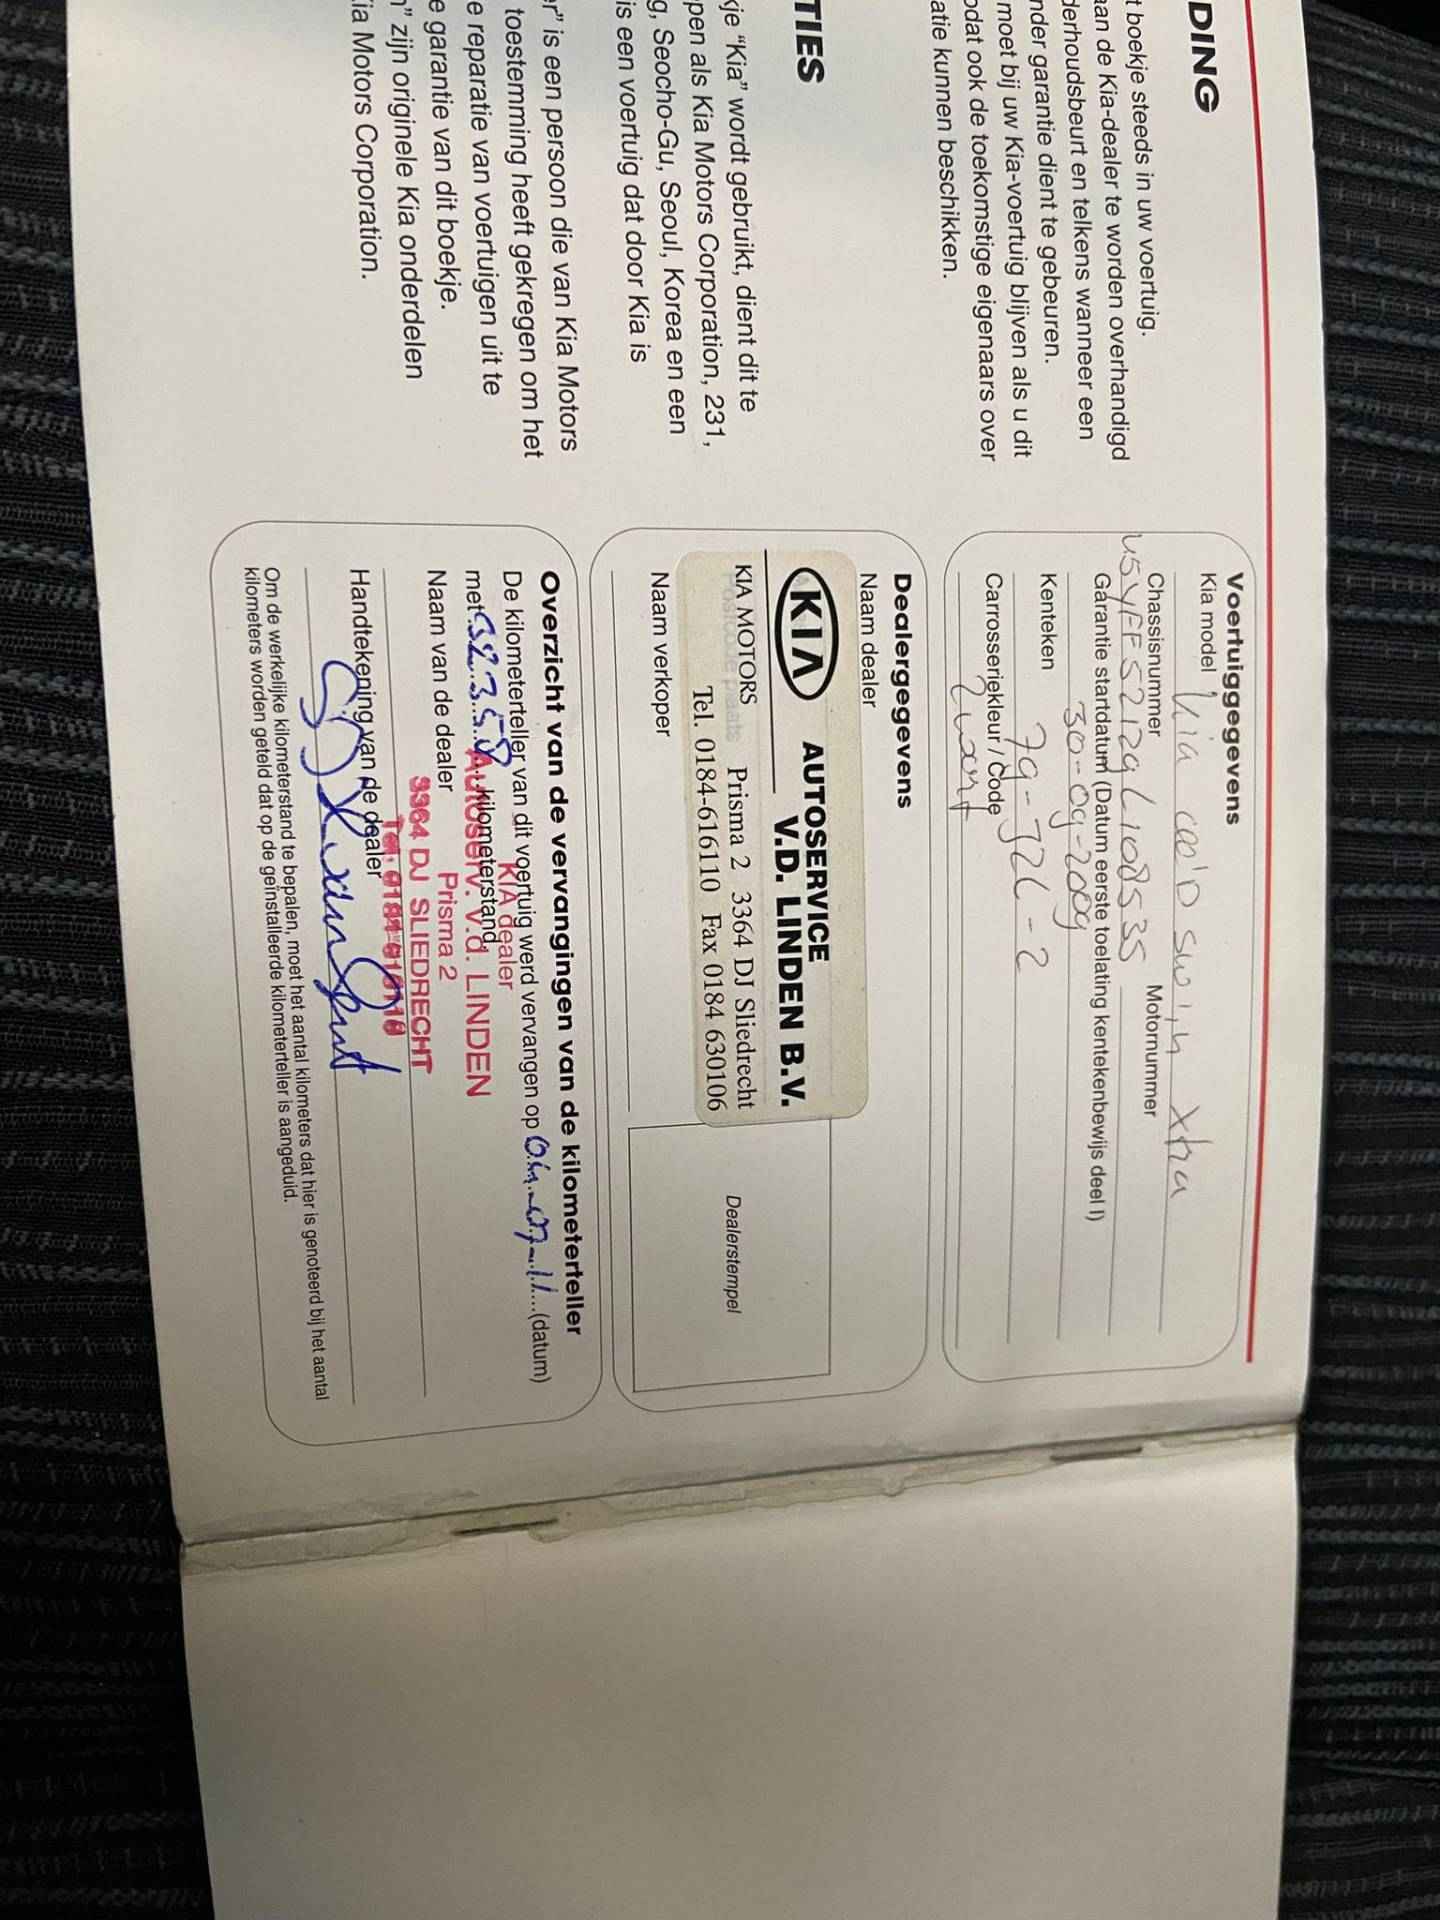 DING
t boekje steeds in uw voertuig.
aan de Kia-dealer te worden overhandigd
derhoudsbeurt en telkens wanneer een
nder garantie dient te gebeuren.
moet bij uw Kia-voertuig blijven als u dit
odat ook de toekomstige eigenaars over
atie kunnen beschikken.
TIES
kje “Kia” wordt gebruikt, dient dit te
pen als Kia Motors Corporation, 231,
g, Seocho-Gu, Seoul, Korea en een
is een voertuig dat door Kia is
er” is een persoon die van Kia Motors
toestemming heeft gekregen om het
e reparatie van voertuigen uit te
e garantie van dit boekje.
n” zijn originele Kia onderdelen
Kia Motors Corporation.
Voertuiggegevens
Kia model Kia cee'D sw 1,4 xtra
Chassisnummer Motornummer
U5YFF52129L108535
Garantie startdatum (Datum eerste toelating kentekenbewijs deel I)
30-09-2009
Kenteken
79-JZL-2
Carrosseriekleur / code
Zwart
Dealergegevens
Naam dealer
KIA AUTOSERVICE
V.D. LINDEN B.V.
KIA MOTORS Prisma 2 3364 DJ Sliedrecht
Tel. 0184-616110 Fax 0184 630106
Postcode plaats
Naam verkoper
Dealerstempel
Overzicht van de vervangingen van de kilometerteller
De kilometerteller van dit voertuig werd vervangen op (datum)
met 32.358 kilometerstand.
Naam van de dealer
KIA dealer
Autoserv. v.d. LINDEN
Prisma 2
3364 DJ SLIEDRECHT
Tel. 0184-616110
Handtekening van de dealer
Om de werkelijke kilometerstand te bepalen, moet het aantal kilometers dat hier is genoteerd bij het aantal
kilometers worden geteld dat op de geïnstalleerde kilometerteller is aangeduid.